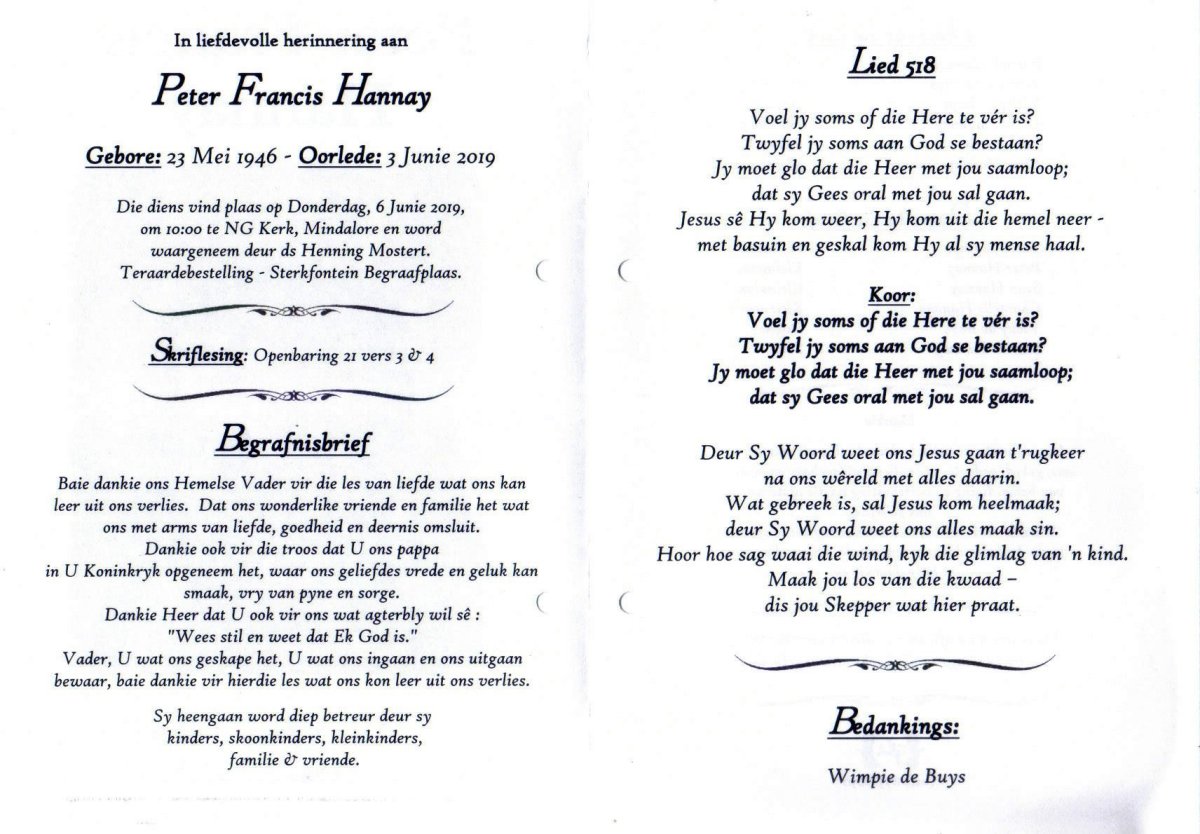 In liefdevolle herinnering aan
Peter Francis Hannay
Gebore: 23 Mei 1946 - Oorlede: 3 Junie 2019
Die diens vind plaas op Donderdag, 6 Junie 2019,
om 10:00 te NG Kerk, Mindalore en word
waargeneem deur ds Henning Mostert.
Teraardebestelling - Sterkfontein Begraafplaas.
Skriflesing: Openbaring 21 vers 3 & 4
Begrafnisbrief
Baie dankie ons Hemelse Vader vir die les van liefde wat ons kan
leer uit ons verlies. Dat ons wonderlike vriende en familie het wat
ons met arms van liefde, goedheid en deernis omsluit.
Dankie ook vir die troos dat U ons pappa
in U Koninkryk opgeneem het, waar ons geliefdes vrede en geluk kan
smaak, vry van pyne en sorge.
Dankie Heer dat U ook vir ons wat agterbly wil sê :
"Wees stil en weet dat Ek God is."
Vader, U wat ons geskape het, U wat ons ingaan en ons uitgaan
bewaar, baie dankie vir hierdie les wat ons kon leer uit ons verlies.
Sy heengaan word diep betreur deur sy
kinders, skoonkinders, kleinkinders,
familie & vriende.
Lied 518
Voel jy soms of die Here te vér is?
Twyfel jy soms aan God se bestaan?
Jy moet glo dat die Heer met jou saamloop;
dat sy Gees oral met jou sal gaan.
Jesus sê Hy kom weer, Hy kom uit die hemel neer -
met basuin en geskal kom Hy al sy mense haal.
Koor:
Voel jy soms of die Here te vér is?
Twyfel jy soms aan God se bestaan?
Jy moet glo dat die Heer met jou saamloop;
dat sy Gees oral met jou sal gaan.
Deur Sy Woord weet ons Jesus gaan t'rugkeer
na ons wêreld met alles daarin.
Wat gebreek is, sal Jesus kom heelmaak;
deur Sy Woord weet ons alles maak sin.
Hoor hoe sag waai die wind, kyk die glimlag van 'n kind.
Maak jou los van die kwaad –
dis jou Skepper wat hier praat.
Bedankings:
Wimpie de Buys